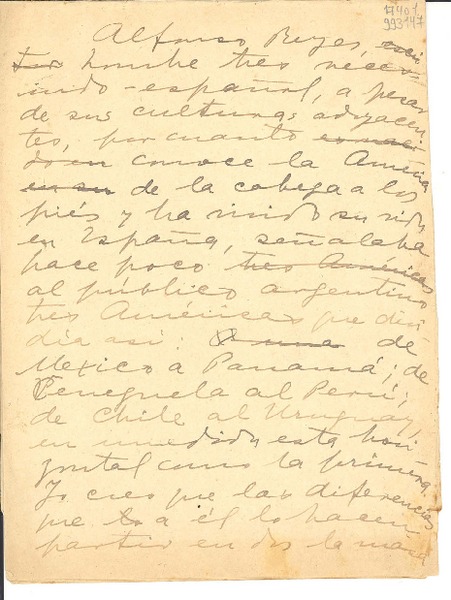 17401
993147
Alfonso Reyes,
hombre tres veces
indo-español, a pesar
de sus culturas adyacen
tes, por cuanto
conoce la América
en su de la cabeza a los
piés y ha vivido su vida
en España, señalaba
hace poco tres Américas
al público argentino
tres Américas que divi
día así: de
Mexico a Panamá; de
Venezuela al Perú;
de Chile al Uruguay,
en medida esta hori
zontal como la primera.
Yo creo que las diferencias
que lo a él lo hacen
partir en dos la masa